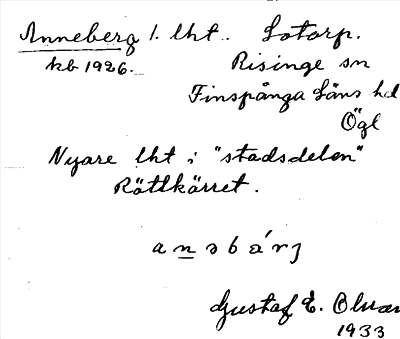 Anneberg 1. lht. Sotorp.
kb 1926. Risinge sn
Finspånga läns hd
Ögl
Nyare lht i "stadsdelen"
Röttkärret.
anəbárj
Gustaf E. Olsson
1933